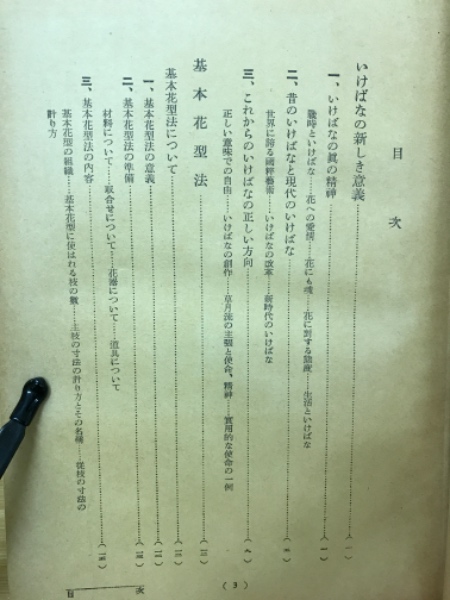 目次
いけばなの新しき意義……(一)
一、いけばなの眞の精神……(一)
戰時といけばな……花への愛情……花にも魂……花に對する態度……生活といけばな
二、昔のいけばなと現代のいけばな
世界に誇る國粹藝術……いけばなの改革……新時代のいけばな
三、これからのいけばなの正しい方向……(九)
正しい意味での自由……いけばなの創作……草月流の主張と使命、精神……實用的な使命の一例
基本花型法
基本花型法について
一、基本花型法の意義
二、基本花型法の準備
材料について……取合せについて……花器について……道具について
三、基本花型法の内容
基本花型の組織……基本花型に使はれる枝の數……主枝の寸法の計り方とその名稱……從枝の寸法の
計り方
目次
(3)